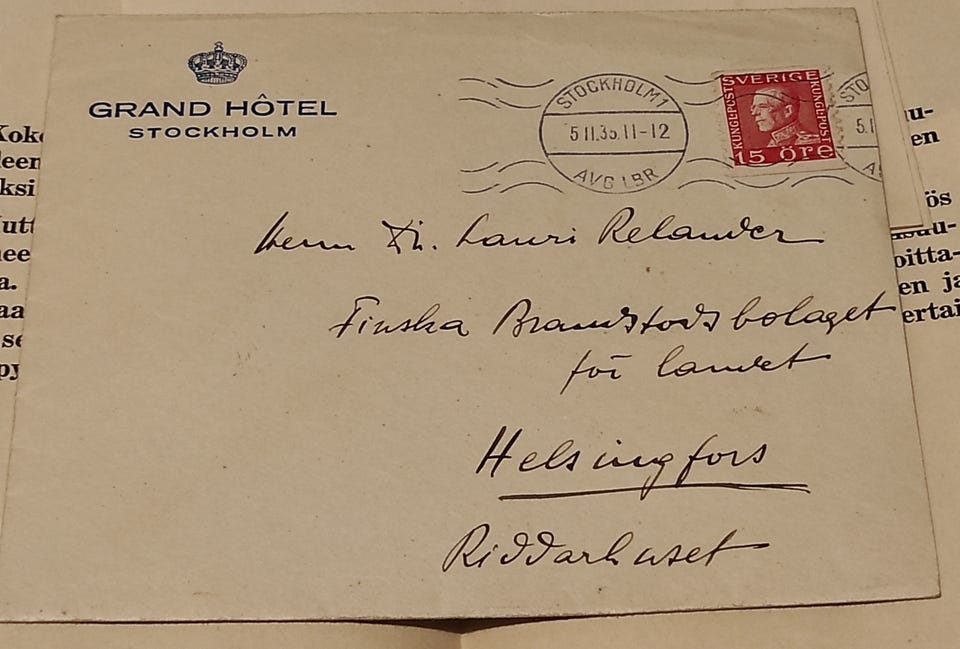 GRAND HÔTEL
STOCKHOLM
STOCKHOLM 1
5 11.35.11-12
AVG LBR
SVERIGE
KUNGL·POST
KUNGL·POST
15 ÖRE
STO
5.1
A
Herrn Dr. Lauri Relander
Finska Brandstodsbolaget
för landet
Helsingfors
Riddarhuset
Koke
leen
ksi
utt
nee
a.
aa
se
py
u-
en
ös
oitta-
en ja
ertai